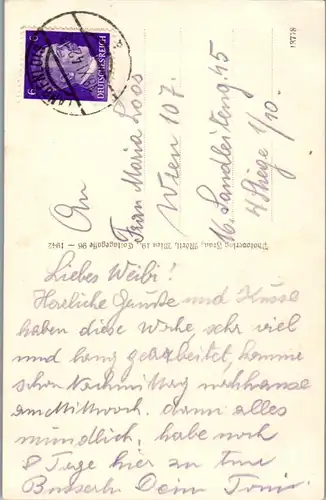 6
DEUTSCHES REICH
6
13778
An
Frau Maria Loos
Wien 107.
16. Sandleiteng. 45
4 Stiege 1/10
Photoverlag Fran. Mörtl, Wien 19, 96 - 1942
Liebes Weibi!
Herzliche Grüsse und Küsse
haben diese Woche sehr viel
und lang gearbeitet, komme
schon Nachmittag nachhause
am Mittwoch. dann alles
mündlich, habe noch
8 Tage hier zu tun
Dein Toni.